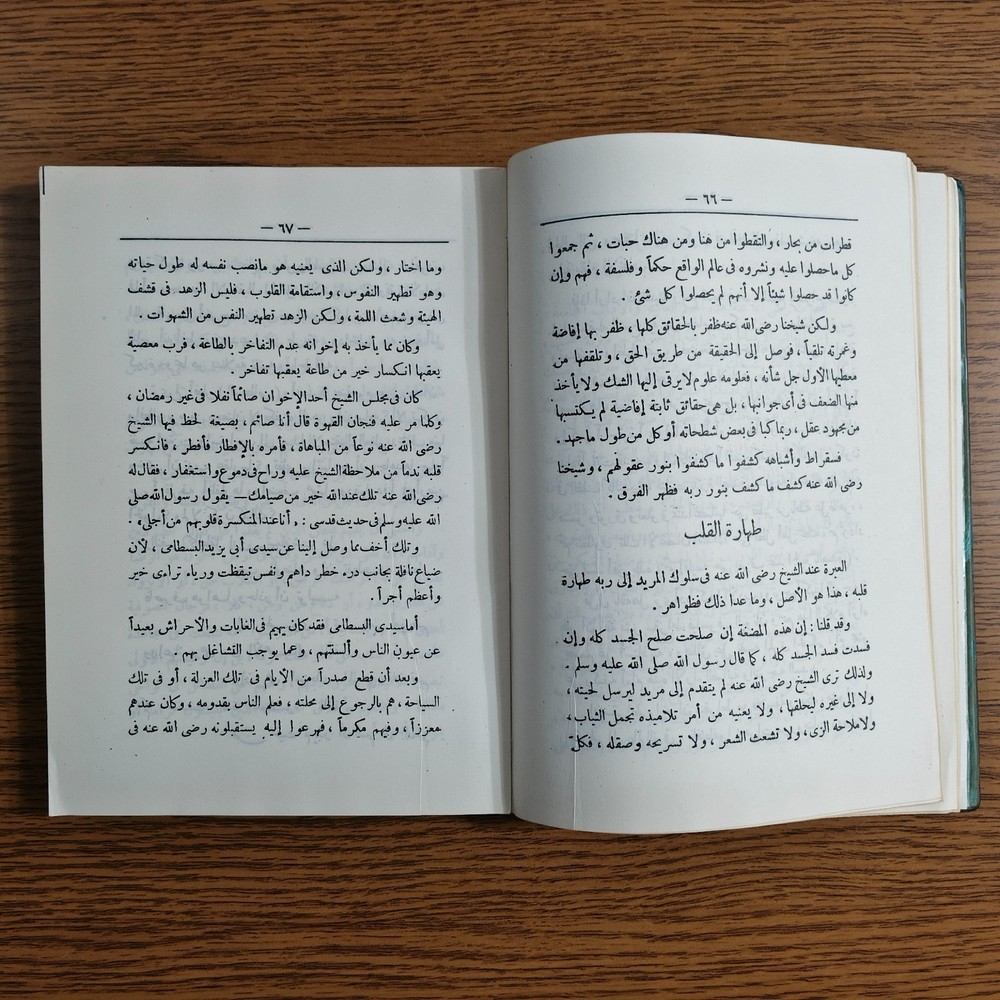 — ٦٦ —
قطرات من بحار ، والتقطوا من هنا ومن هناك حبات ، ثم جمعوا
كل ماحصلوا عليه ونشروه فى عالم الواقع حكماً وفلسفة ، فهم وإن
كانوا قد حصلوا شيئاً إلا أنهم لم يحصلوا كل شئ .
ولكن شيخنا رضى الله عنه ظفر بالحقائق كلها ، ظفر بها إفاضة
وغمرته تلقياً ، فوصل إلى الحقيقة من طريق الحق ، وتلقفها من
معطيها الأول جل شأنه ، فعلومه علوم لا يرقى إليها الشك ولا يأخذ
منها الضعف فى أى جوانبها ، بل هى حقائق ثابتة إفاضية لم يكتسبها
من مجهود عقل ، ربما كبا فى بعض شطحاته أو كل من طول ما جهد .
فسقراط وأشباهه كشفوا ما كشفوا بنور عقولهم ، وشيخنا
رضى الله عنه كشف ما كشف بنور ربه فظهر الفرق .
طهارة القلب
العبرة عند الشيخ رضى الله عنه فى سلوك المريد إلى ربه طهارة
قلبه ، هذا هو الأصل ، وما عدا ذلك فظواهر .
وقد قلنا : إن هذه المضغة إن صلحت صلح الجسد كله وإن
فسدت فسد الجسد كله ، كما قال رسول الله صلى الله عليه وسلم .
ولذلك ترى الشيخ رضى الله عنه لم يتقدم إلى مريد ليرسل لحيته ،
ولا إلى غيره ليحلقها ، ولا يعنيه من أمر تلاميذه تجمل الثياب ،
ولا ملاحة الزى ، ولا تشعث الشعر ، ولا تسريحه وصقله ، فكل
— ٦٧ —
وما اختار ، ولكن الذى يعنيه هو مانصب نفسه له طول حياته
وهو تطهير النفوس ، واستقامة القلوب ، فليس الزهد فى قشف
الهيئة وشعث اللمة ، ولكن الزهد تطهير النفس من الشهوات .
وكان مما يأخذ به إخوانه عدم التفاخر بالطاعة ، فرب معصية
يعقبها انكسار خير من طاعة يعقبها تفاخر .
كان فى مجلس الشيخ أحد الإخوان صائماً نفلا فى غير رمضان ،
وكلما مر عليه فنجان القهوة قال أنا صائم ، بصيغة لحظ فيها الشيخ
رضى الله عنه نوعاً من المباهاة ، فأمره بالإفطار فأفطر ، فانكسر
قلبه ندماً من ملاحظة الشيخ عليه وراح فى دموع واستغفار ، فقال له
رضى الله عنه تلك عند الله خير من صيامك — يقول رسول الله صلى
الله عليه وسلم فى حديث قدسى : « أنا عند المنكسرة قلوبهم من أجلى » .
وتلك أخف مما وصل إلينا عن سيدى أبى يزيد البسطامى ، لأن
ضياع نافلة بجانب درء خطر داهم ونفس تيقظت ورياء تراءى خير
وأعظم أجراً .
أما سيدى البسطامى فقد كان يهيم فى الغابات والأحراش بعيداً
عن عيون الناس وألسنتهم ، وعما يوجب التشاغل بهم .
وبعد أن قطع صدراً من الأيام فى تلك العزلة ، أو فى تلك
السياحة ، هم بالرجوع إلى محلته ، فعلم الناس بقدومه ، وكان عندهم
معززاً ، وفيهم مكرماً ، فهرعوا إليه يستقبلونه رضى الله عنه فى